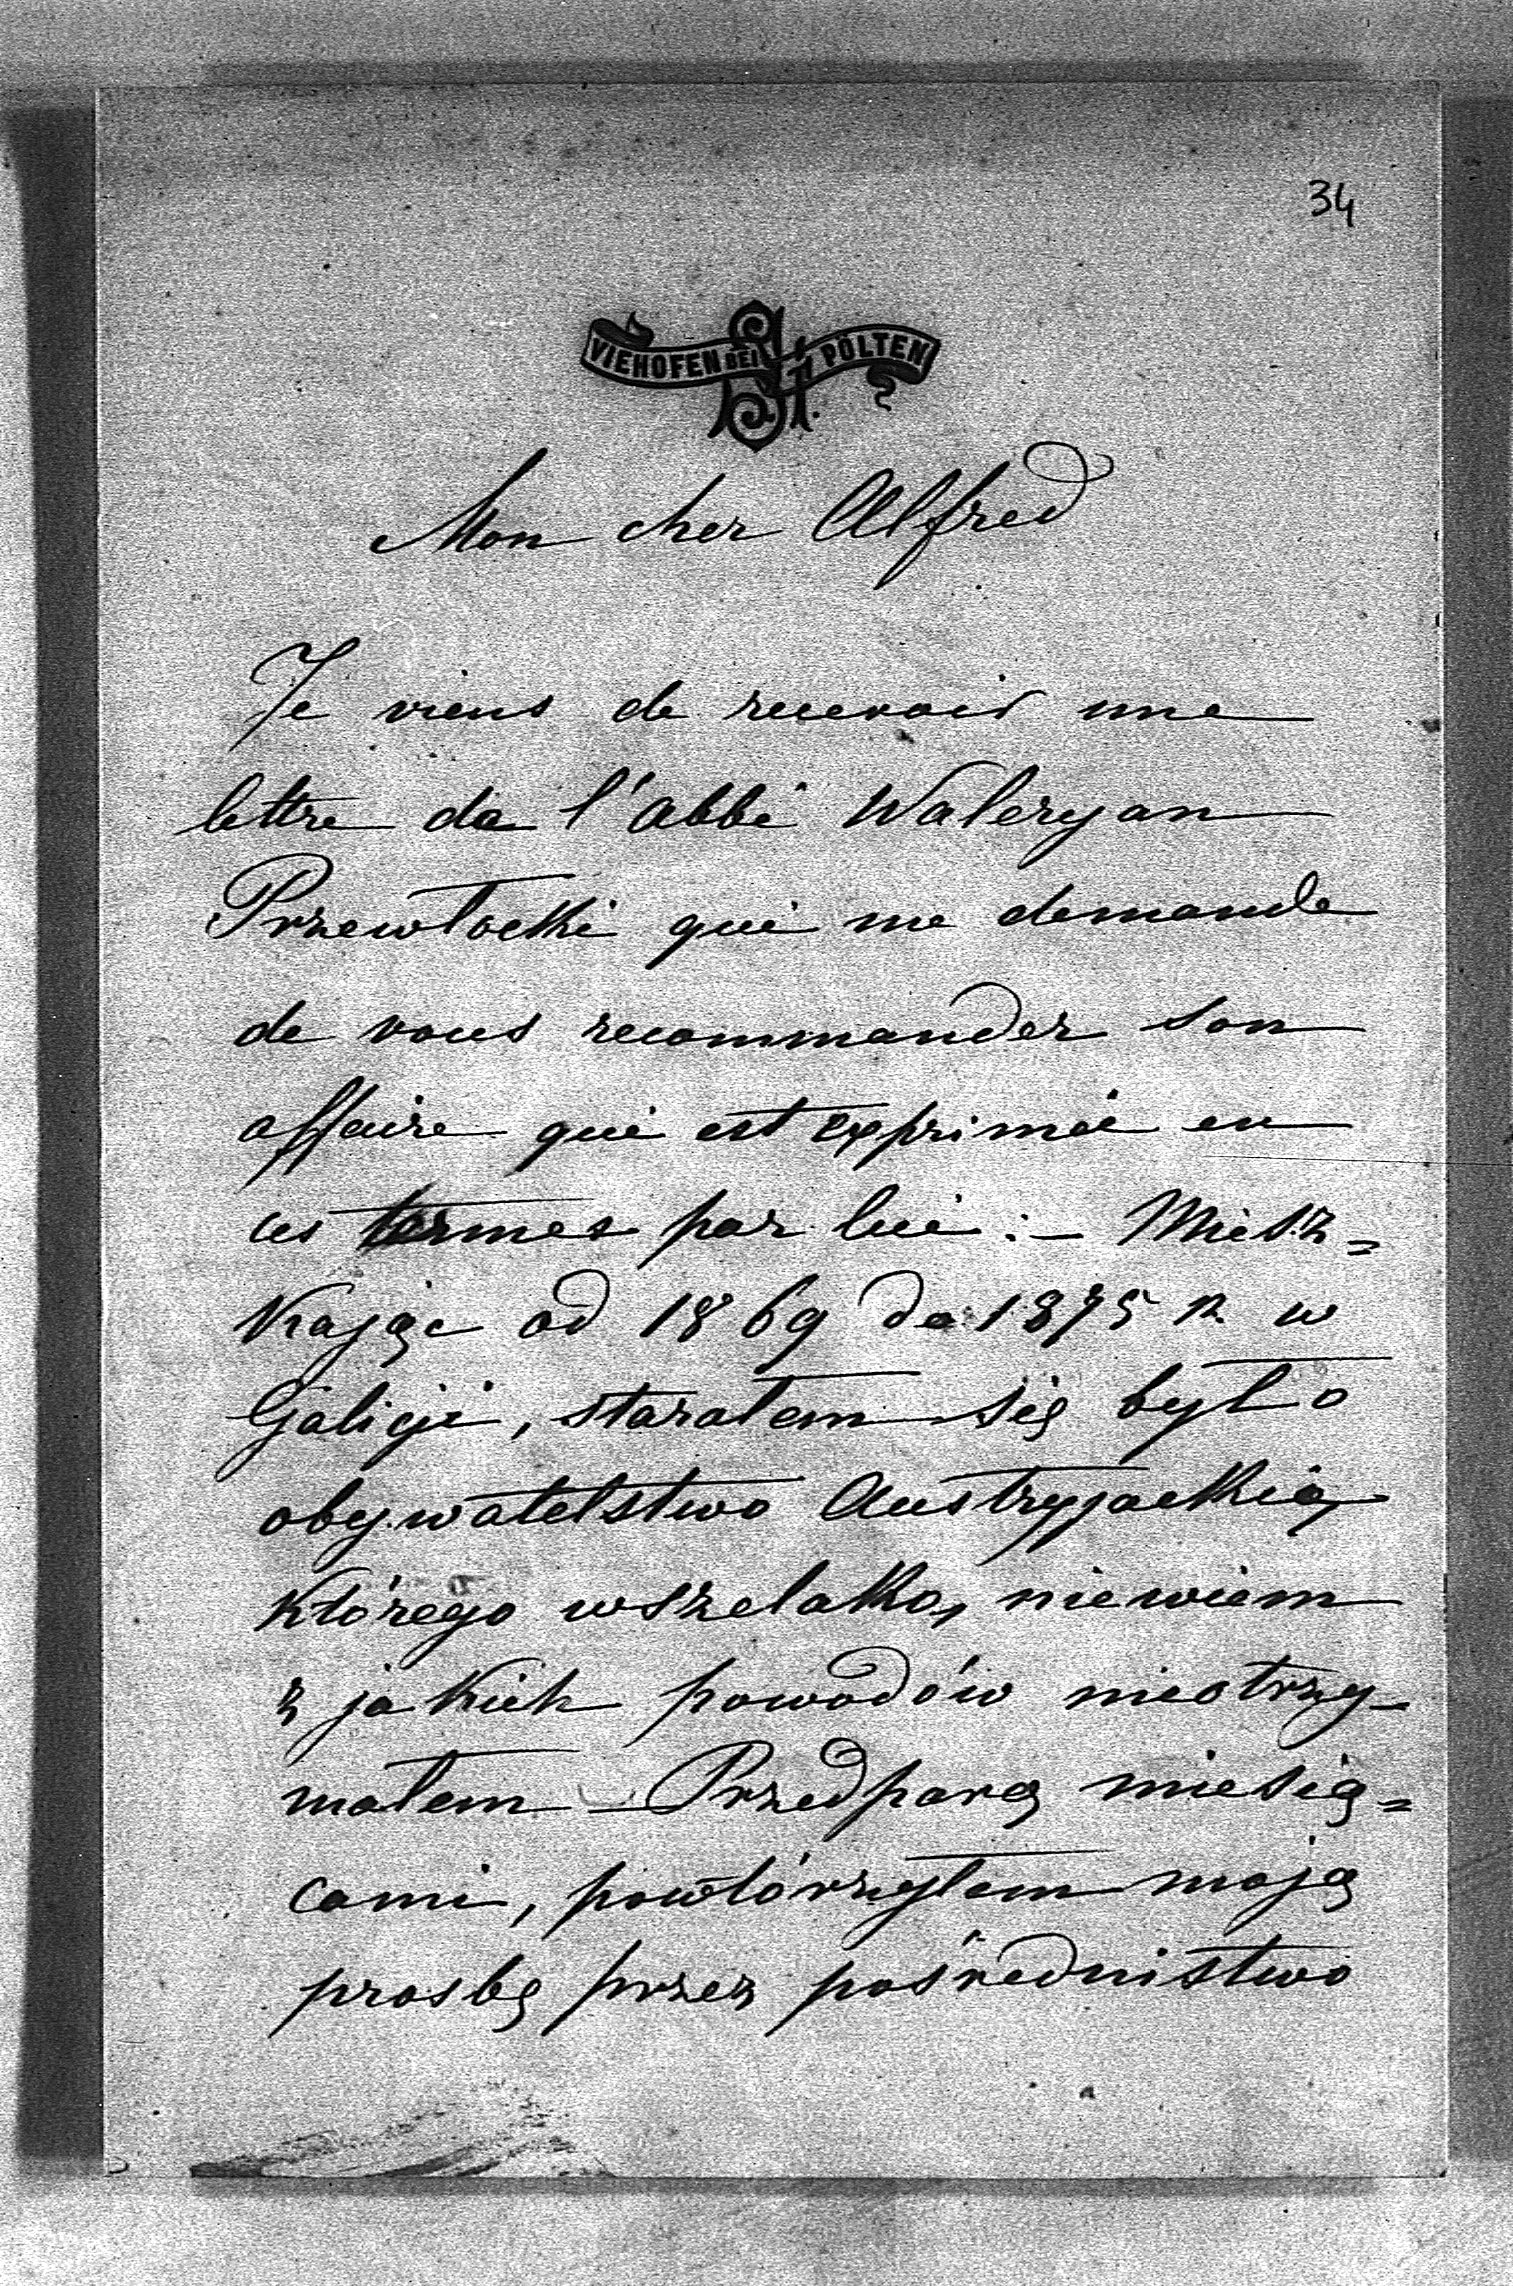 34
VIEHOFEN BEI ST. PÖLTEN
Mon cher Alfred
Je viens de recevoir une
lettre de l'abbé Waleryan
Przewłocki qui me demande
de vous recommander son
affaire qui est exprimée en
ces termes par lui : — Miesz=
kając od 1869 do 1875 r. w
Galicji, starałem się był o
obywatelstwo Austryjackie,
którego wszelako, niewiem
z jakich powodów nieotrzy-
małem — Przed parą miesią=
cami, powtórzyłem moję
prośbę przez pośrednistwo